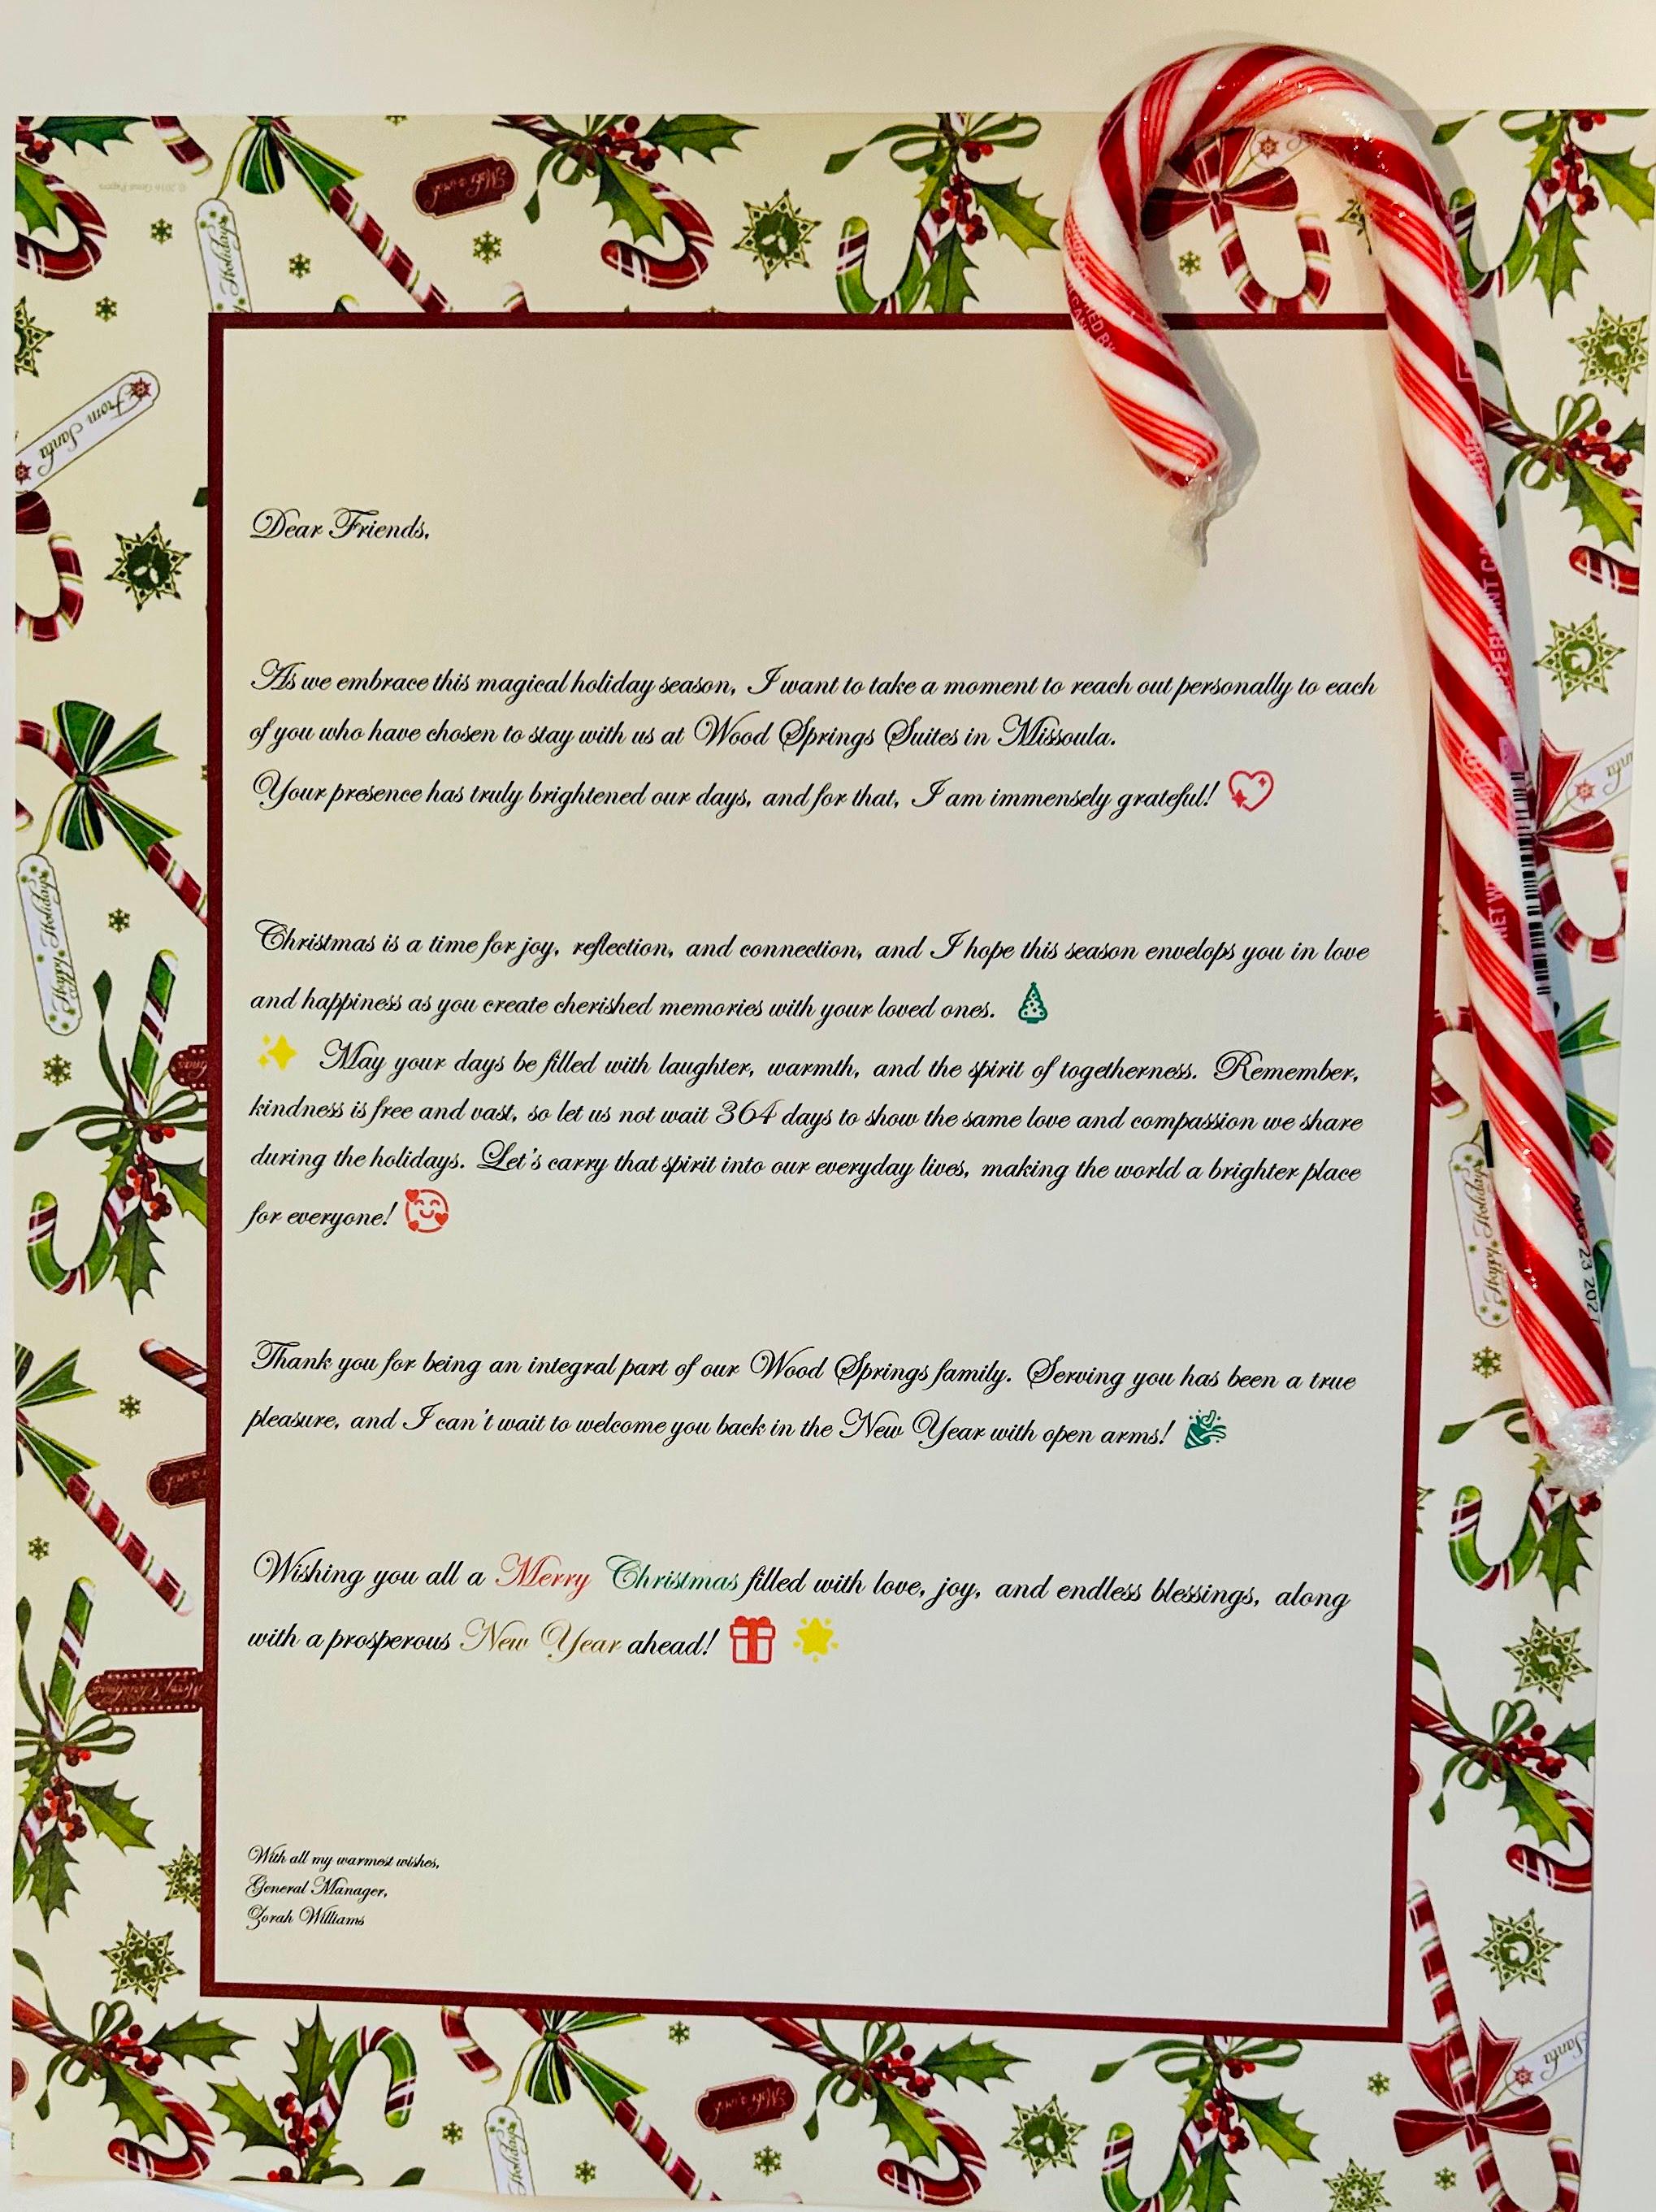 © 2016 Great Papers
Make a wish
Holidays
From Santa
Dear Friends,
As we embrace this magical holiday season, I want to take a moment to reach out personally to each
of you who have chosen to stay with us at Wood Springs Suites in Missoula.
Your presence has truly brightened our days, and for that, I am immensely grateful!
Happy Holidays
Christmas is a time for joy, reflection, and connection, and I hope this season envelops you in love
and happiness as you create cherished memories with your loved ones.
May your days be filled with laughter, warmth, and the spirit of togetherness. Remember,
kindness is free and vast, so let us not wait 364 days to show the same love and compassion we share
during the holidays. Let's carry that spirit into our everyday lives, making the world a brighter place
for everyone!
Happy Holidays
Thank you for being an integral part of our Wood Springs family. Serving you has been a true
pleasure, and I can't wait to welcome you back in the New Year with open arms!
Wishing you all a Merry Christmas filled with love, joy, and endless blessings, along
with a prosperous New Year ahead!
Merry Christmas
With all my warmest wishes,
General Manager,
Zorah Williams
Santa
Make a wish
Holidays
NET W
23 202